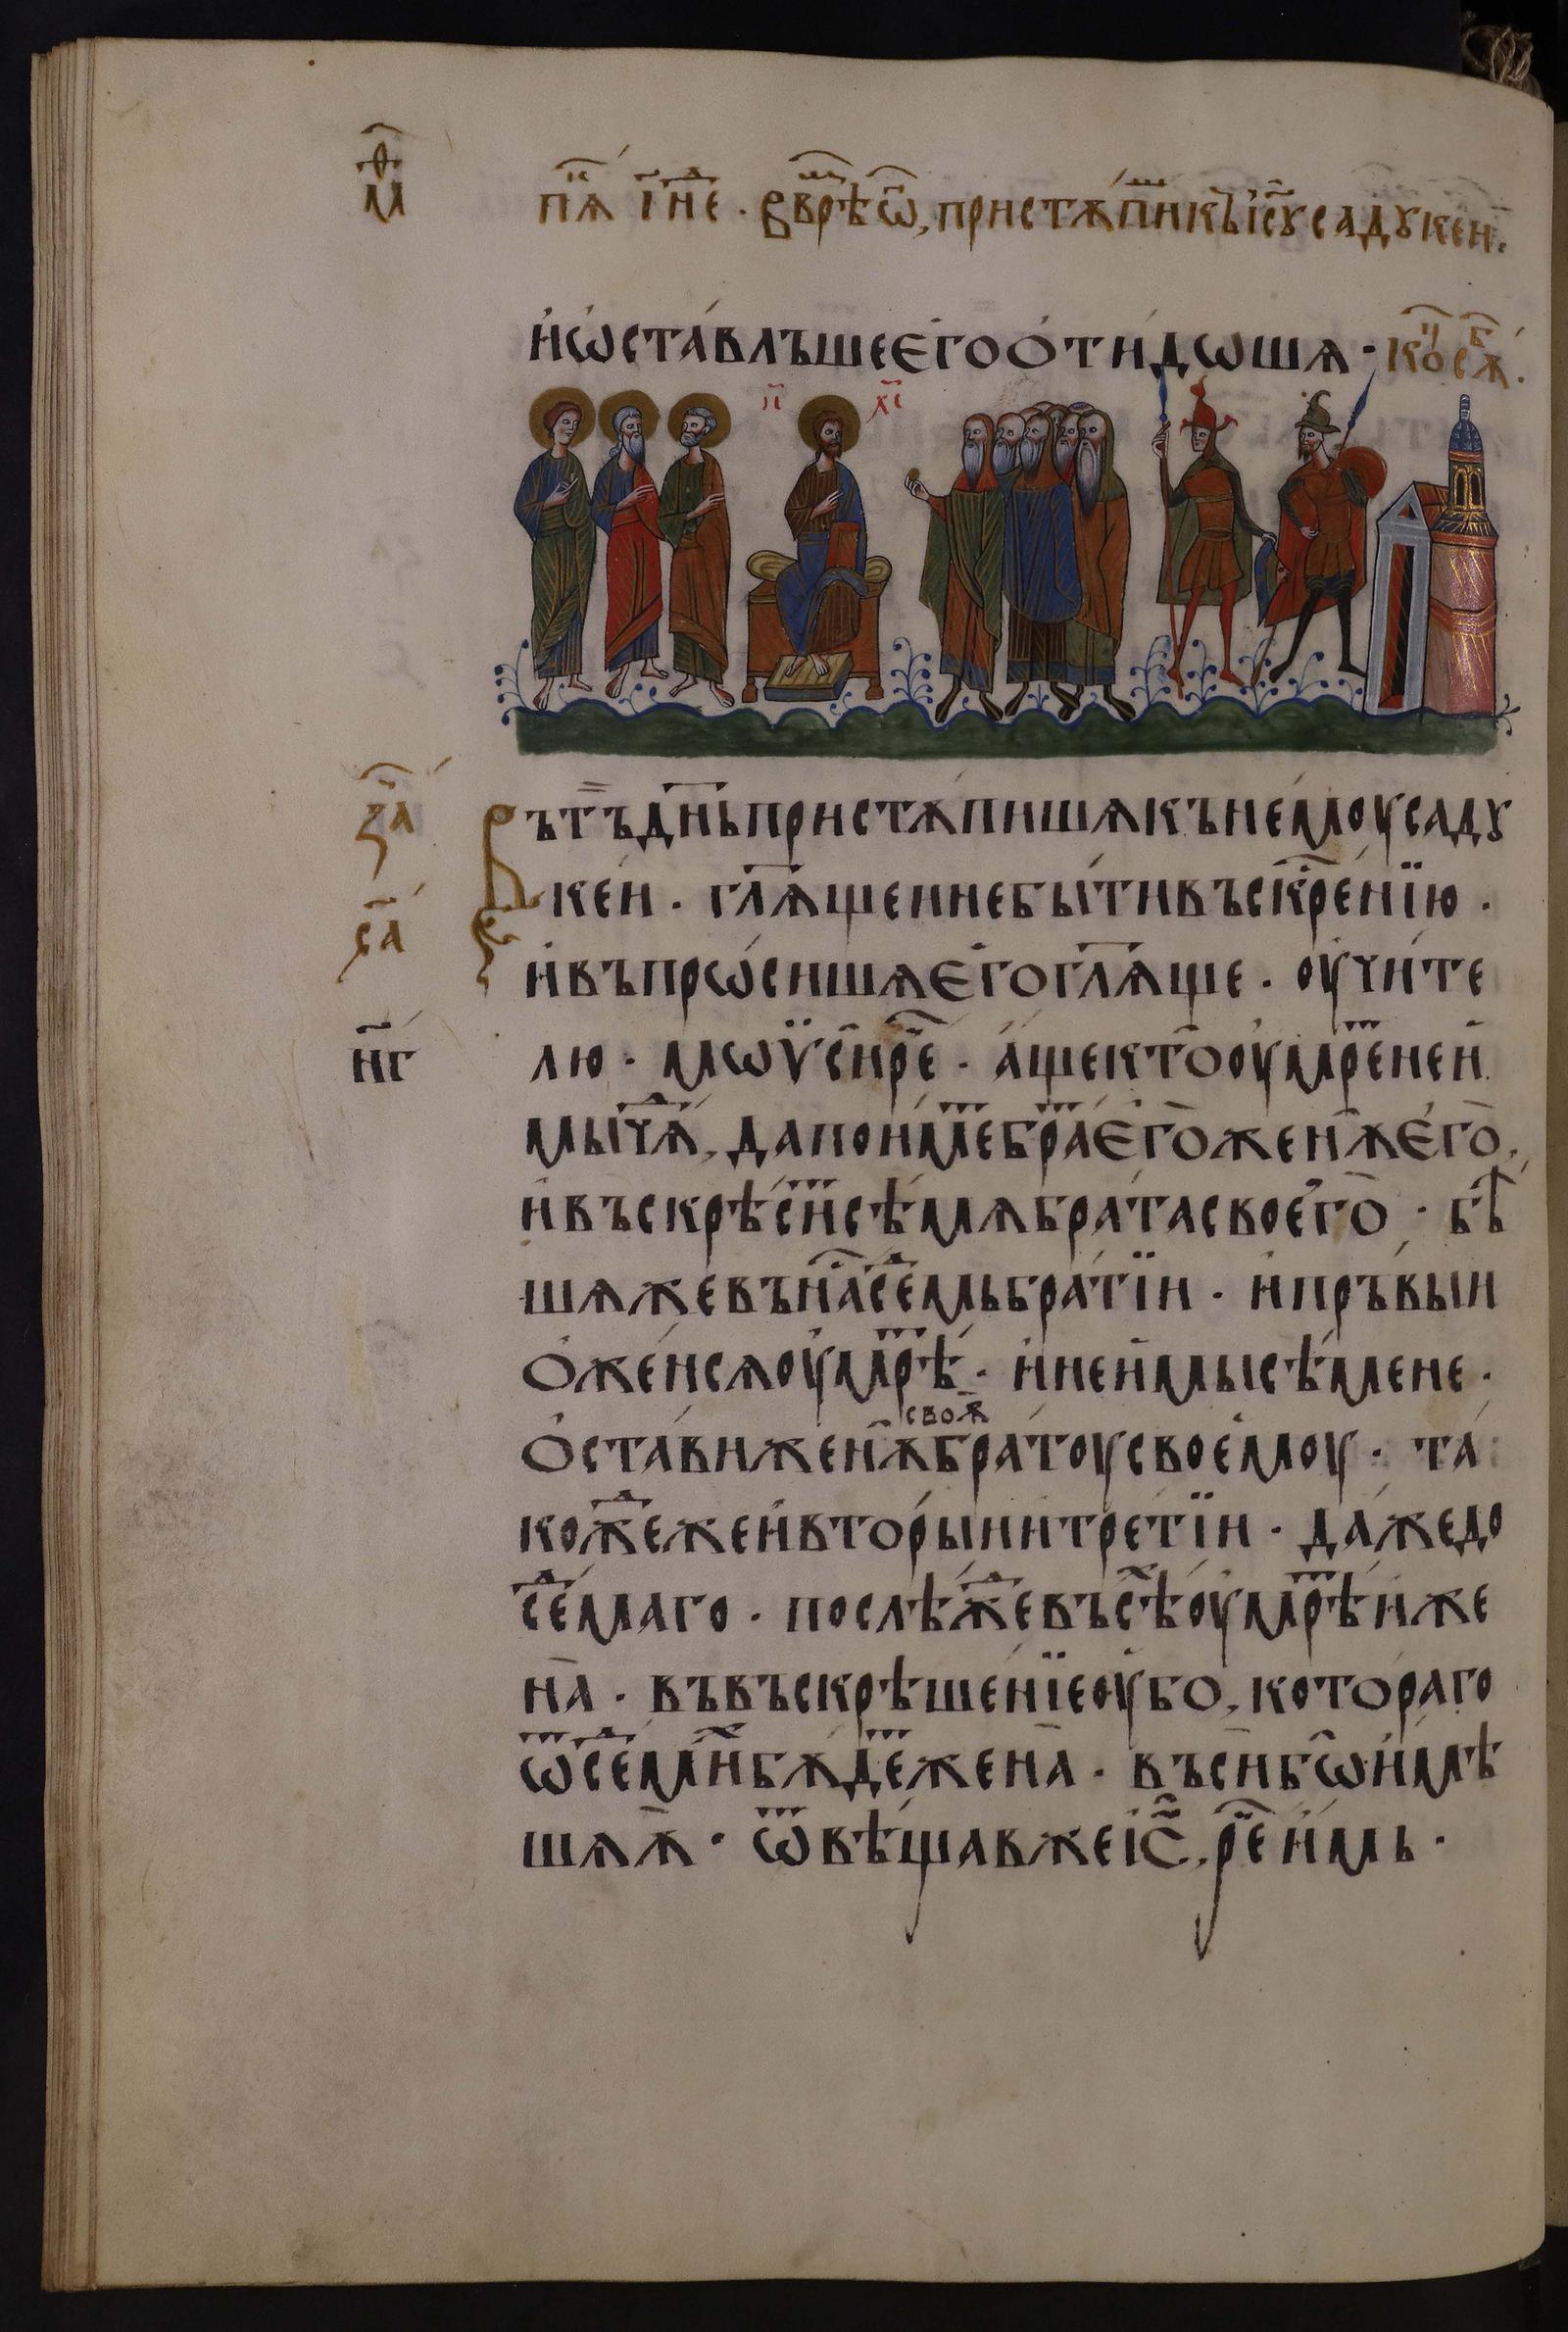 м҃ѳ
пⷦ҇ѧ і҃ неⷣ . В вр҄ѣ ѿ, пристѫпⷲ҇и къ і҃су садꙋкеи.
и ѡставльше его отидошѧ · коⷩ҇ц сѫⷠ҇.
і҃с х҃с
за҃
са҃
нг҃
Въ тъ д҃нь пристѫпишѧ къ немоу садꙋ
кеи . гл҃ѫщеи не быти въскр҃енїю .
и въпрѡсишѧ его гл҃ѫще . оучите
лю . мѡѵси рⷱ҇е . аще кто оумрⷮ҇е не и
мы чѧⷣ, да поимⷮ҇е браⷮ его женѫ его,
и въскрѣсиⷮ сѣмѧ брата своего · бѣ
шѧ же въ наⷭ҇ сеⷣмь братїи . и пръвыи
ожениⷡ҇сѧ оумрⷮ҇ѣ . и не имы сѣмене .
остави женѫ своѫ братоу своемоу . та
кожⷣе же и вторыи и третїи . даже до
сеⷣмаго . послѣжⷣе въсⷯѣ оумрⷮ҇ѣ и же
на . въ въскрѣшенїе оубо, котораго
ѿ сеⷣмиⷯ бѫдⷮ҇е жена . въси бѡ имѣ
шѧ ѫ . ѿвѣщав же і҃с, рⷱ҇е имь .